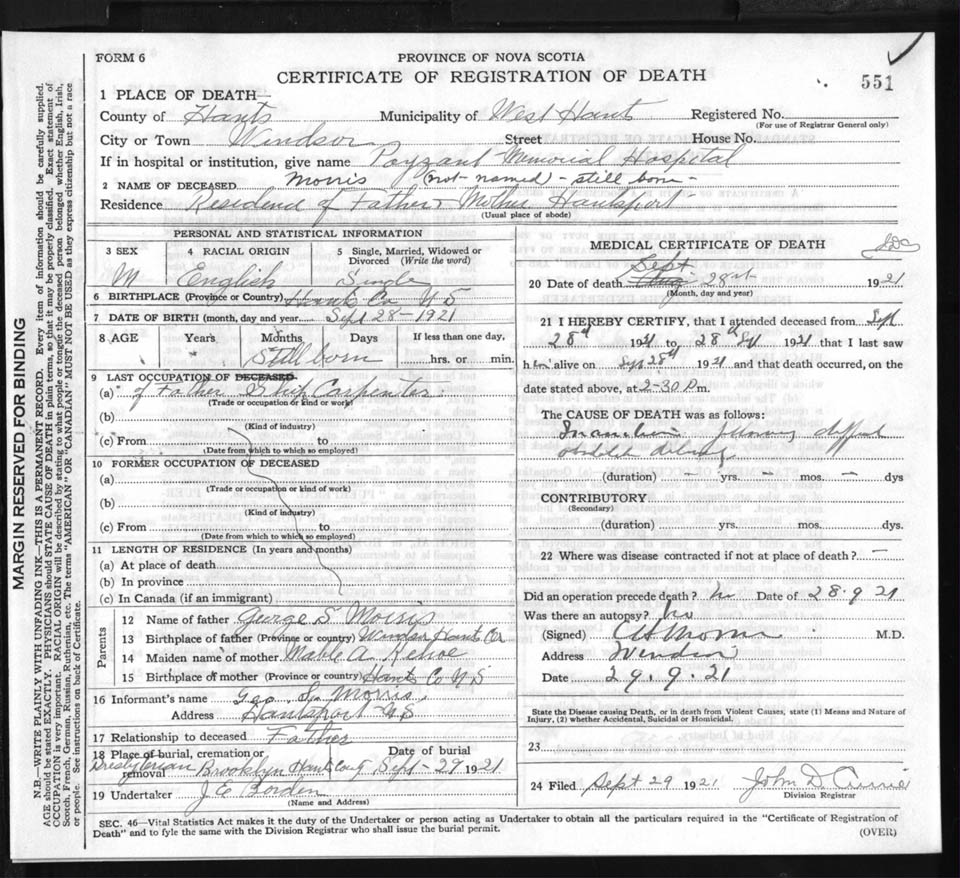 FORM 6
PROVINCE OF NOVA SCOTIA
CERTIFICATE OF REGISTRATION OF DEATH
551
1 PLACE OF DEATH—
County of Hants Municipality of West Hants Registered No.
(For use of Registrar General only)
City or Town Windsor Street House No.
If in hospital or institution, give name Payzant Memorial Hospital
2 NAME OF DECEASED Morris (not named) - still born -
Residence Residence of Father & Mother Hantsport
(Usual place of abode)
PERSONAL AND STATISTICAL INFORMATION
3 SEX 4 RACIAL ORIGIN 5 Single, Married, Widowed or Divorced (Write the word)
M English Single
6 BIRTHPLACE (Province or Country) Hants Co N S
7 DATE OF BIRTH (month, day and year) Sept 28 - 1921
8 AGE Years Months Days If less than one day,
Still born hrs. or min.
9 LAST OCCUPATION OF DECEASED
(a) of Father Ship Carpenter
(Trade or occupation or kind of work)
(b)
(Kind of industry)
(c) From to
(Date from which to which so employed)
10 FORMER OCCUPATION OF DECEASED
(a)
(Trade or occupation or kind of work)
(b)
(Kind of industry)
(c) From to
(Date from which to which so employed)
11 LENGTH OF RESIDENCE (In years and months)
(a) At place of death
(b) In province
(c) In Canada (if an immigrant)
Parents
12 Name of father George S Morris
13 Birthplace of father (Province or country) Windsor Hants Co
14 Maiden name of mother Mable A Kehoe
15 Birthplace of mother (Province or country) Hants Co N S
16 Informant's name Geo S. Morris
Address Hantsport N S
17 Relationship to deceased Father
18 Place of burial, cremation or removal Date of burial
Presbyterian Brooklyn Hants County Sept - 29 1921
19 Undertaker J E Borden
(Name and Address)
MEDICAL CERTIFICATE OF DEATH
20 Date of death Sept 28 1921
(Month, day and year)
21 I HEREBY CERTIFY, that I attended deceased from Spt
28th 1921 to 28th Spt 1921 that I last saw
h alive on Spt 28th 1921 and that death occurred, on the
date stated above, at 2-30 P.m.
The CAUSE OF DEATH was as follows:
Inanition following difficult
(duration) yrs. mos. dys
CONTRIBUTORY
(Secondary)
(duration) yrs. mos. dys.
22 Where was disease contracted if not at place of death? —
Did an operation precede death? no Date of 28.9 21
Was there an autopsy? no
(Signed) M.D.
Address Windsor
Date 29.9.21
State the Disease causing Death, or in death from Violent Causes, state (1) Means and Nature of
Injury, (2) whether Accidental, Suicidal or Homicidal.
23
24 Filed Sept 29 1921 John D Currie
Division Registrar
SEC. 46—Vital Statistics Act makes it the duty of the Undertaker or person acting as Undertaker to obtain all the particulars required in the "Certificate of Registration of
Death" and to fyle the same with the Division Registrar who shall issue the burial permit.
(OVER)
MARGIN RESERVED FOR BINDING
N.B.—WRITE PLAINLY WITH UNFADING INK—THIS IS A PERMANENT RECORD. Every item of information should be carefully supplied.
AGE should be stated EXACTLY. PHYSICIANS should STATE CAUSE OF DEATH in plain terms, so that it may be properly classified. Exact statement of
OCCUPATION is very important. RACIAL ORIGIN will be described by stating to what people or tongue the deceased person belonged whether English, Irish,
Scotch, French, German, Russian, Ruthenian, etc. The terms "AMERICAN" or "CANADIAN" MUST NOT BE USED as they express citizenship but not a race
or people. See instructions on back of Certificate.